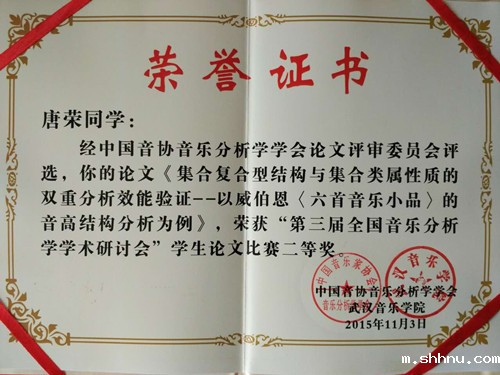 荣誉证书
唐荣同学：
经中国音协音乐分析学学会论文评审委员会评
选，你的论文《集合复合型结构与集合类属性质的
双重分析效能验证--以威伯恩〈六首音乐小品〉的
音高结构分析为例》，荣获“第三届全国音乐分析
学学术研讨会”学生论文比赛二等奖。
中国音乐家协会
音乐分析学学会
武汉音乐学院
中国音协音乐分析学学会
武汉音乐学院
2015年11月3日
m.shhnu.com